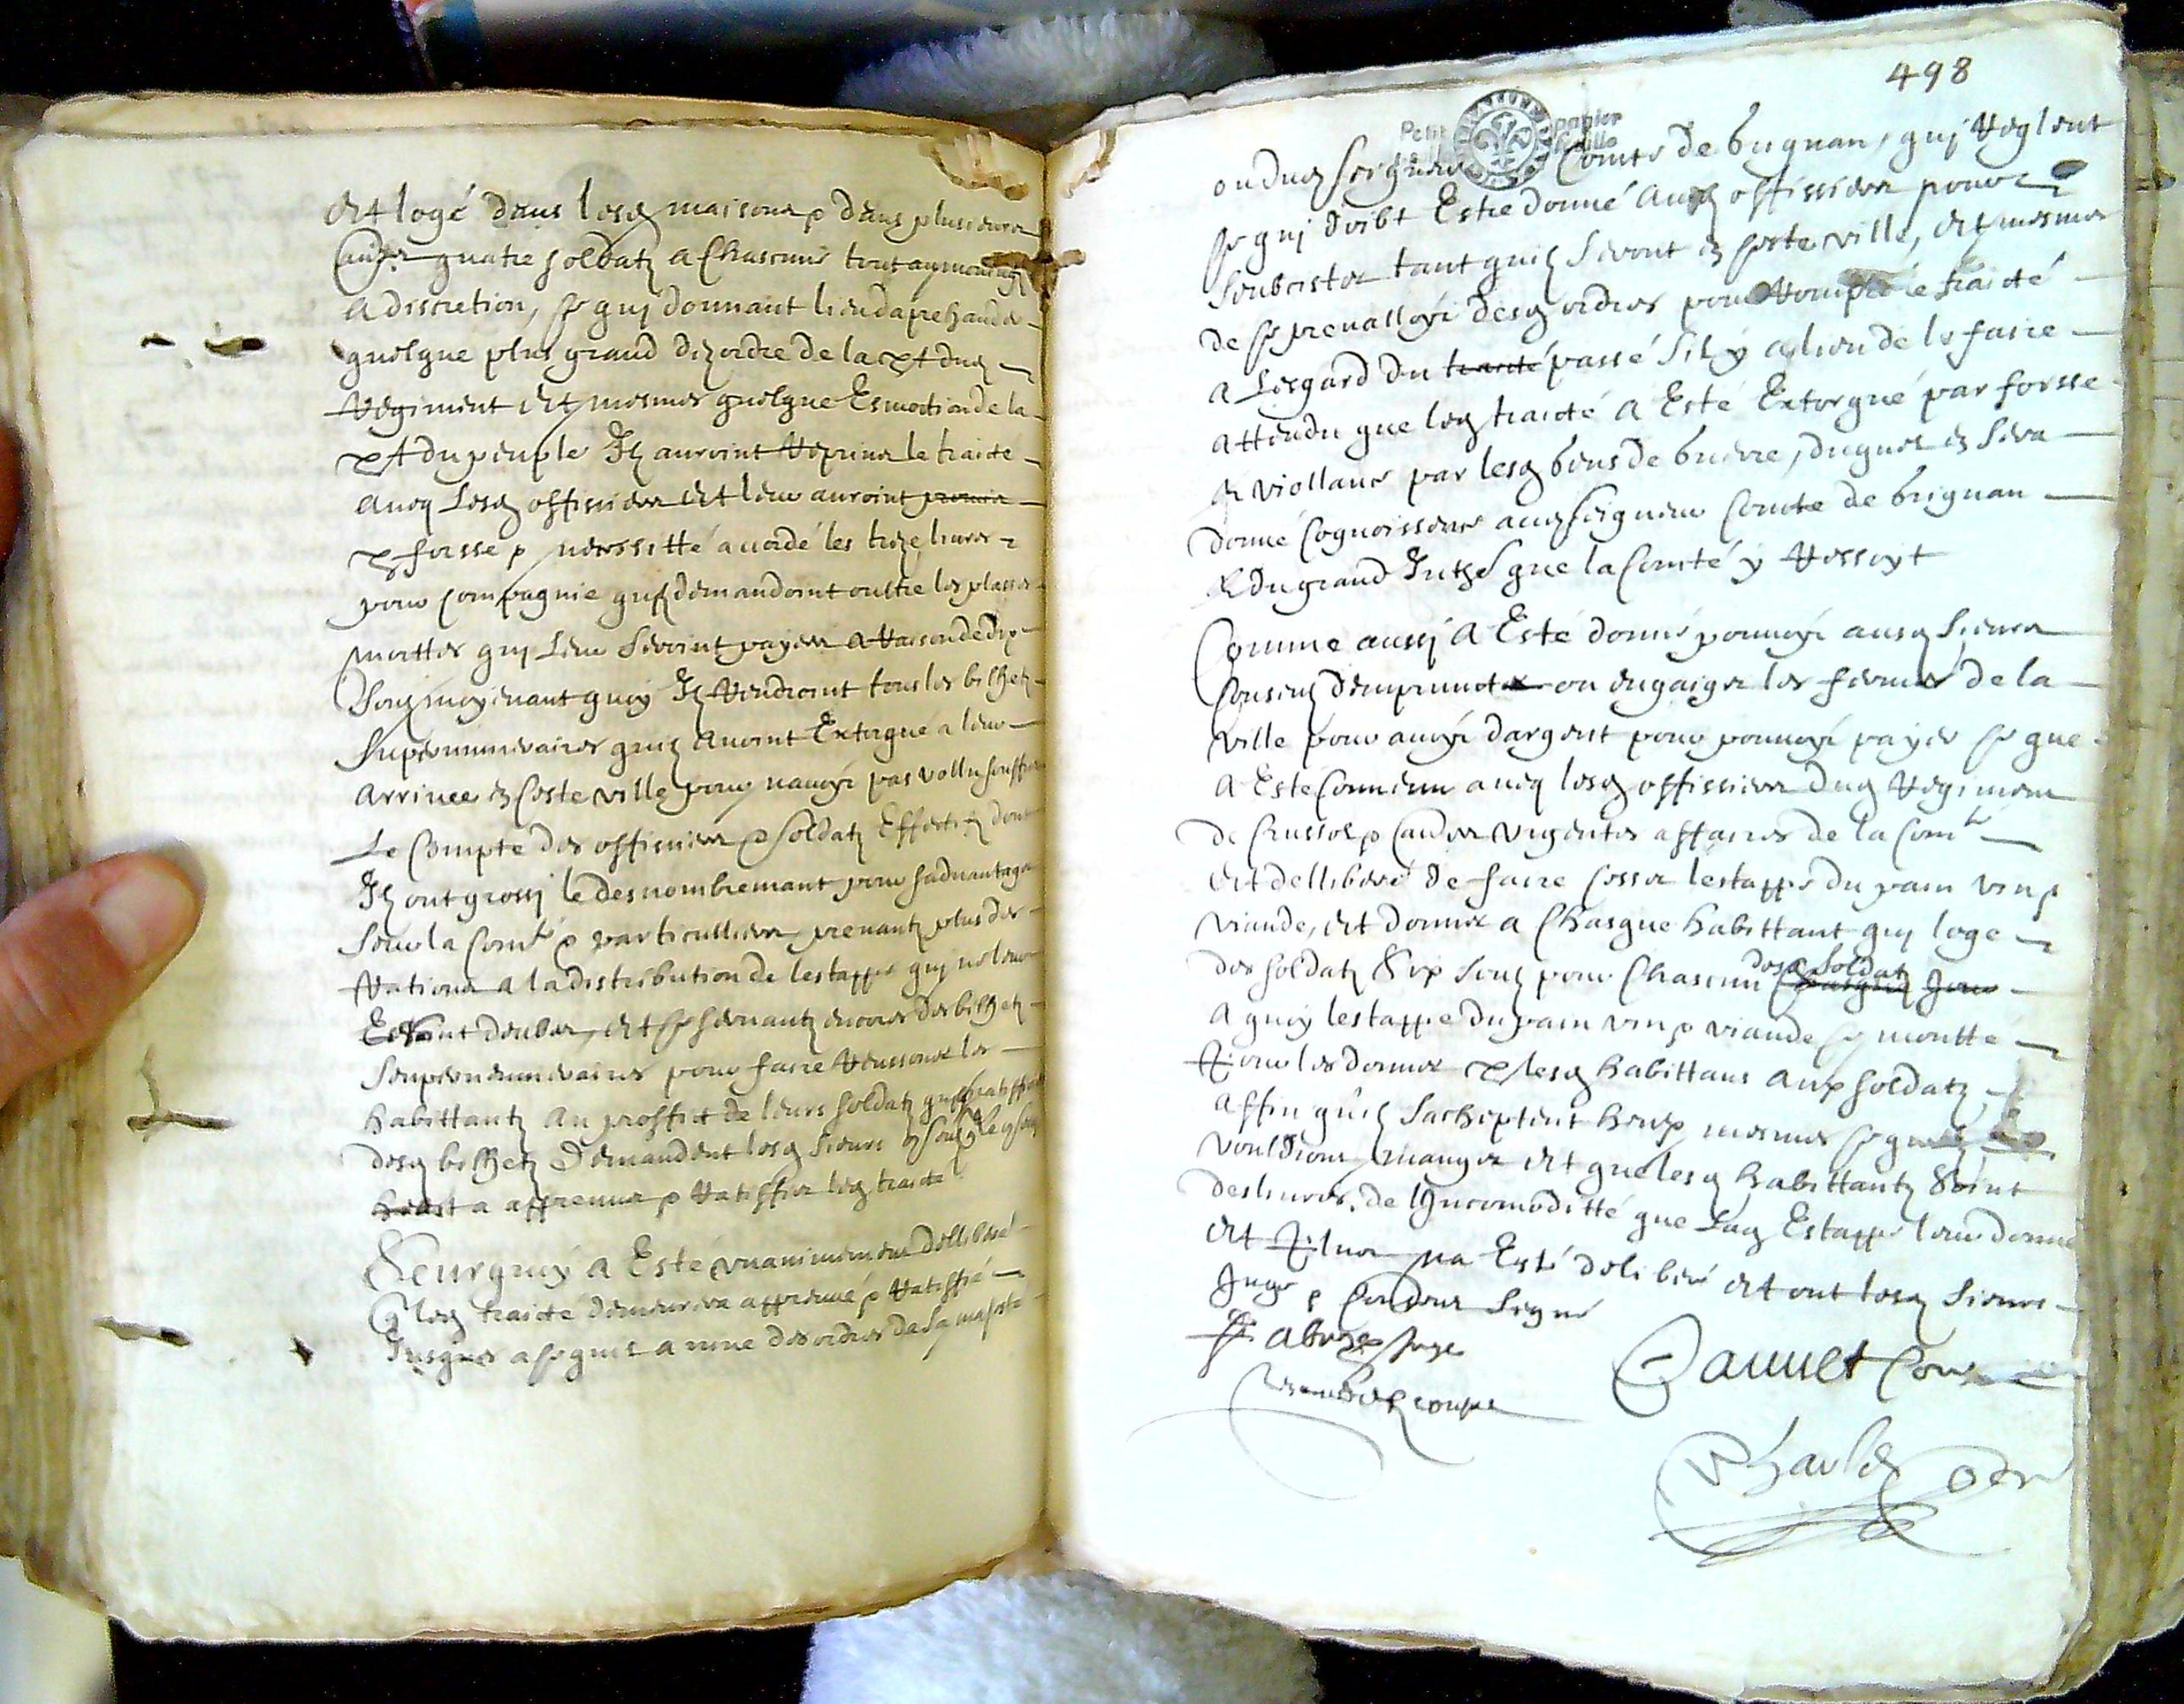 et logé dans lesd maisons & dans plusieurs
quatre soldatz a chascune tout au moingz
a discretion, se quj donnant lieu daprehander
quelque plus grand dizordre de la part dud
Regiment et mesmes quelque Esmotion de la
part du peuple Ilz auroint Reprins le traicté
aueq Lesd offissiers et leur auroint
par forsse & nessessitté acordé les treze liures
pour compagnie quilz demandoint oultre les plasses
mortes quj Leur seroint payées a Raison de dix
solz moyenant quoy Ilz Rendroint tous les bilhetz
supernumeraires quilz auoint Extorqué a leur
arriuee en ceste ville pour nauoyr pas vollu souffrir
Le Compte des offissiers & soldatz Effectifz dont
Ilz ont grossj le desnombremant pour sadvantager
sur la comté & particulliers prenantz plus de
Rations a la distribution de lestappe quj ne leur
Estoint deubes, et se seruantz encores des bilhetz
supernumeraires pour faire Ransoner les
habittantz au proffict de leurs soldatz
desd bilhetz Demandent lesd sieurs consulz
a appreuuer & Ratiffier led traicté
Seurquoy a Esté vnanimement delliberé
q led traicté demeurera appreuué & Ratiffié
Jusques a se quil arriue des ordres de sa majesté
498
Petit papier
ou dud seigneur Comte de brignan, quj Reglent
se quj doibt Estre donné ausd offissiers pour
soubcister tant quilz seront en ceste ville, et mesmes
de se preualloyr desd ordres pour Rompre le traicté
a Lesgard du traicté passé sil y a lieu de le faire
attendu que led traicté a Esté Extorqué par forsse
& viollance par lesd gens de guerre, duquel en sera
donné cognoissence aud seigneur Comte de brignan
& du grand Inthe que la Comté y Ressoyt
Comme aussj a Esté donné pouuoyr ausd sieurs
Consulz demprunter ou engaiger les fermes de la
ville pour auoyr dargent pour pouuoyr payer se que
a Esté conuenu aueq lesd offissiers dud Regiment
de Crussol & aultres vrgentes affaires de la Comté
et delliberé de faire cesser lestappe du pain vin &
viande, et donner a chasque habittant quj loge
des soldatz six solz pour chascun desd soldatz
a quoy lestappe du pain vin & viande se montte
pour les donner par lesd habittans aux soldatz
affin quilz sacheptent heux mesmes se quilz
vouldront manger et que lesd habittantz soint
desliurés de lIncomoditté que Lad Estappe leur donne
et plus na Esté deliberé et ont lesd sieurs
Juge & Consulz signé
Juge